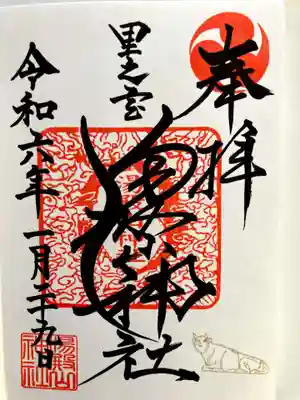 奉拝
里之宮
湯殿山神社
令和六年一月二十九日
湯殿山神社